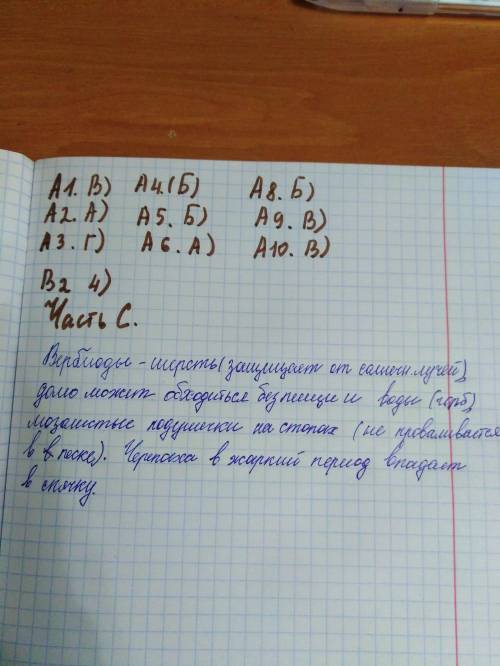 А1. В) А4.(Б) А8. Б)
А2. А) А5. Б) А9. В)
А3. Г) А6. А) А10. В)
В2 4)
Часть С.
Верблюды - шерсть (защищает от солнечн. лучей),
долго может обходиться без пищи и воды (горб),
мозолистые подушечки на стопах (не проваливается
в песке). Черепаха в жаркий период впадает
в спячку.